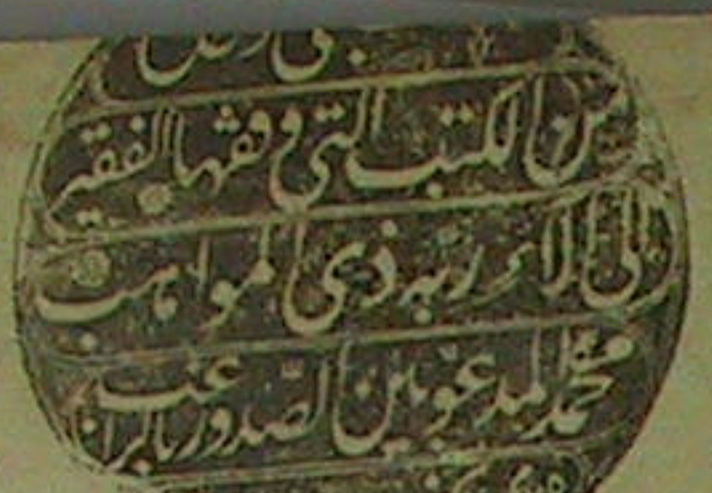 من الكتب التي وقفها الفقير
الى آلاء ربه ذي المواهب
محمد المدعو بين الصدور بالراغب